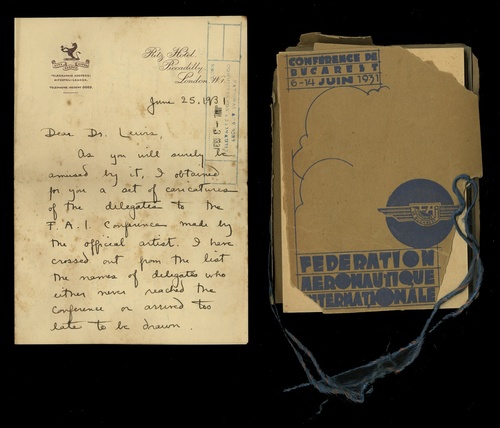 Ritz Hotel,
Piccadilly,
London W1.
TELEGRAPHIC ADDRESS,
TELEPHONE, REGENT
June 25, 1931
Dear Dr. Lewis,
As you will surely be
amused by it, I obtained
for you a set of caricatures
of the delegates to the
F.A.I. Conference made by
the official artist. I have
crossed out from the list
the names of delegates who
either never reached the
Conference or arrived too
late to be drawn.
CONFERENCE DE
BUCAREST
6-14 JUIN 1931
FEDERATION
AERONAUTIQUE
INTERNATIONALE